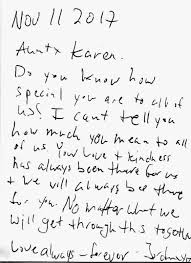 Nov 11 2017
Auntx Karen.
Do you know how
special you are to all of
us! I cant tell you
how much you mean to all
of us. Your love + kindness
has always been there for us
+ We will always bee there
for you. No matter what we
will get through this together
Love always - forever -